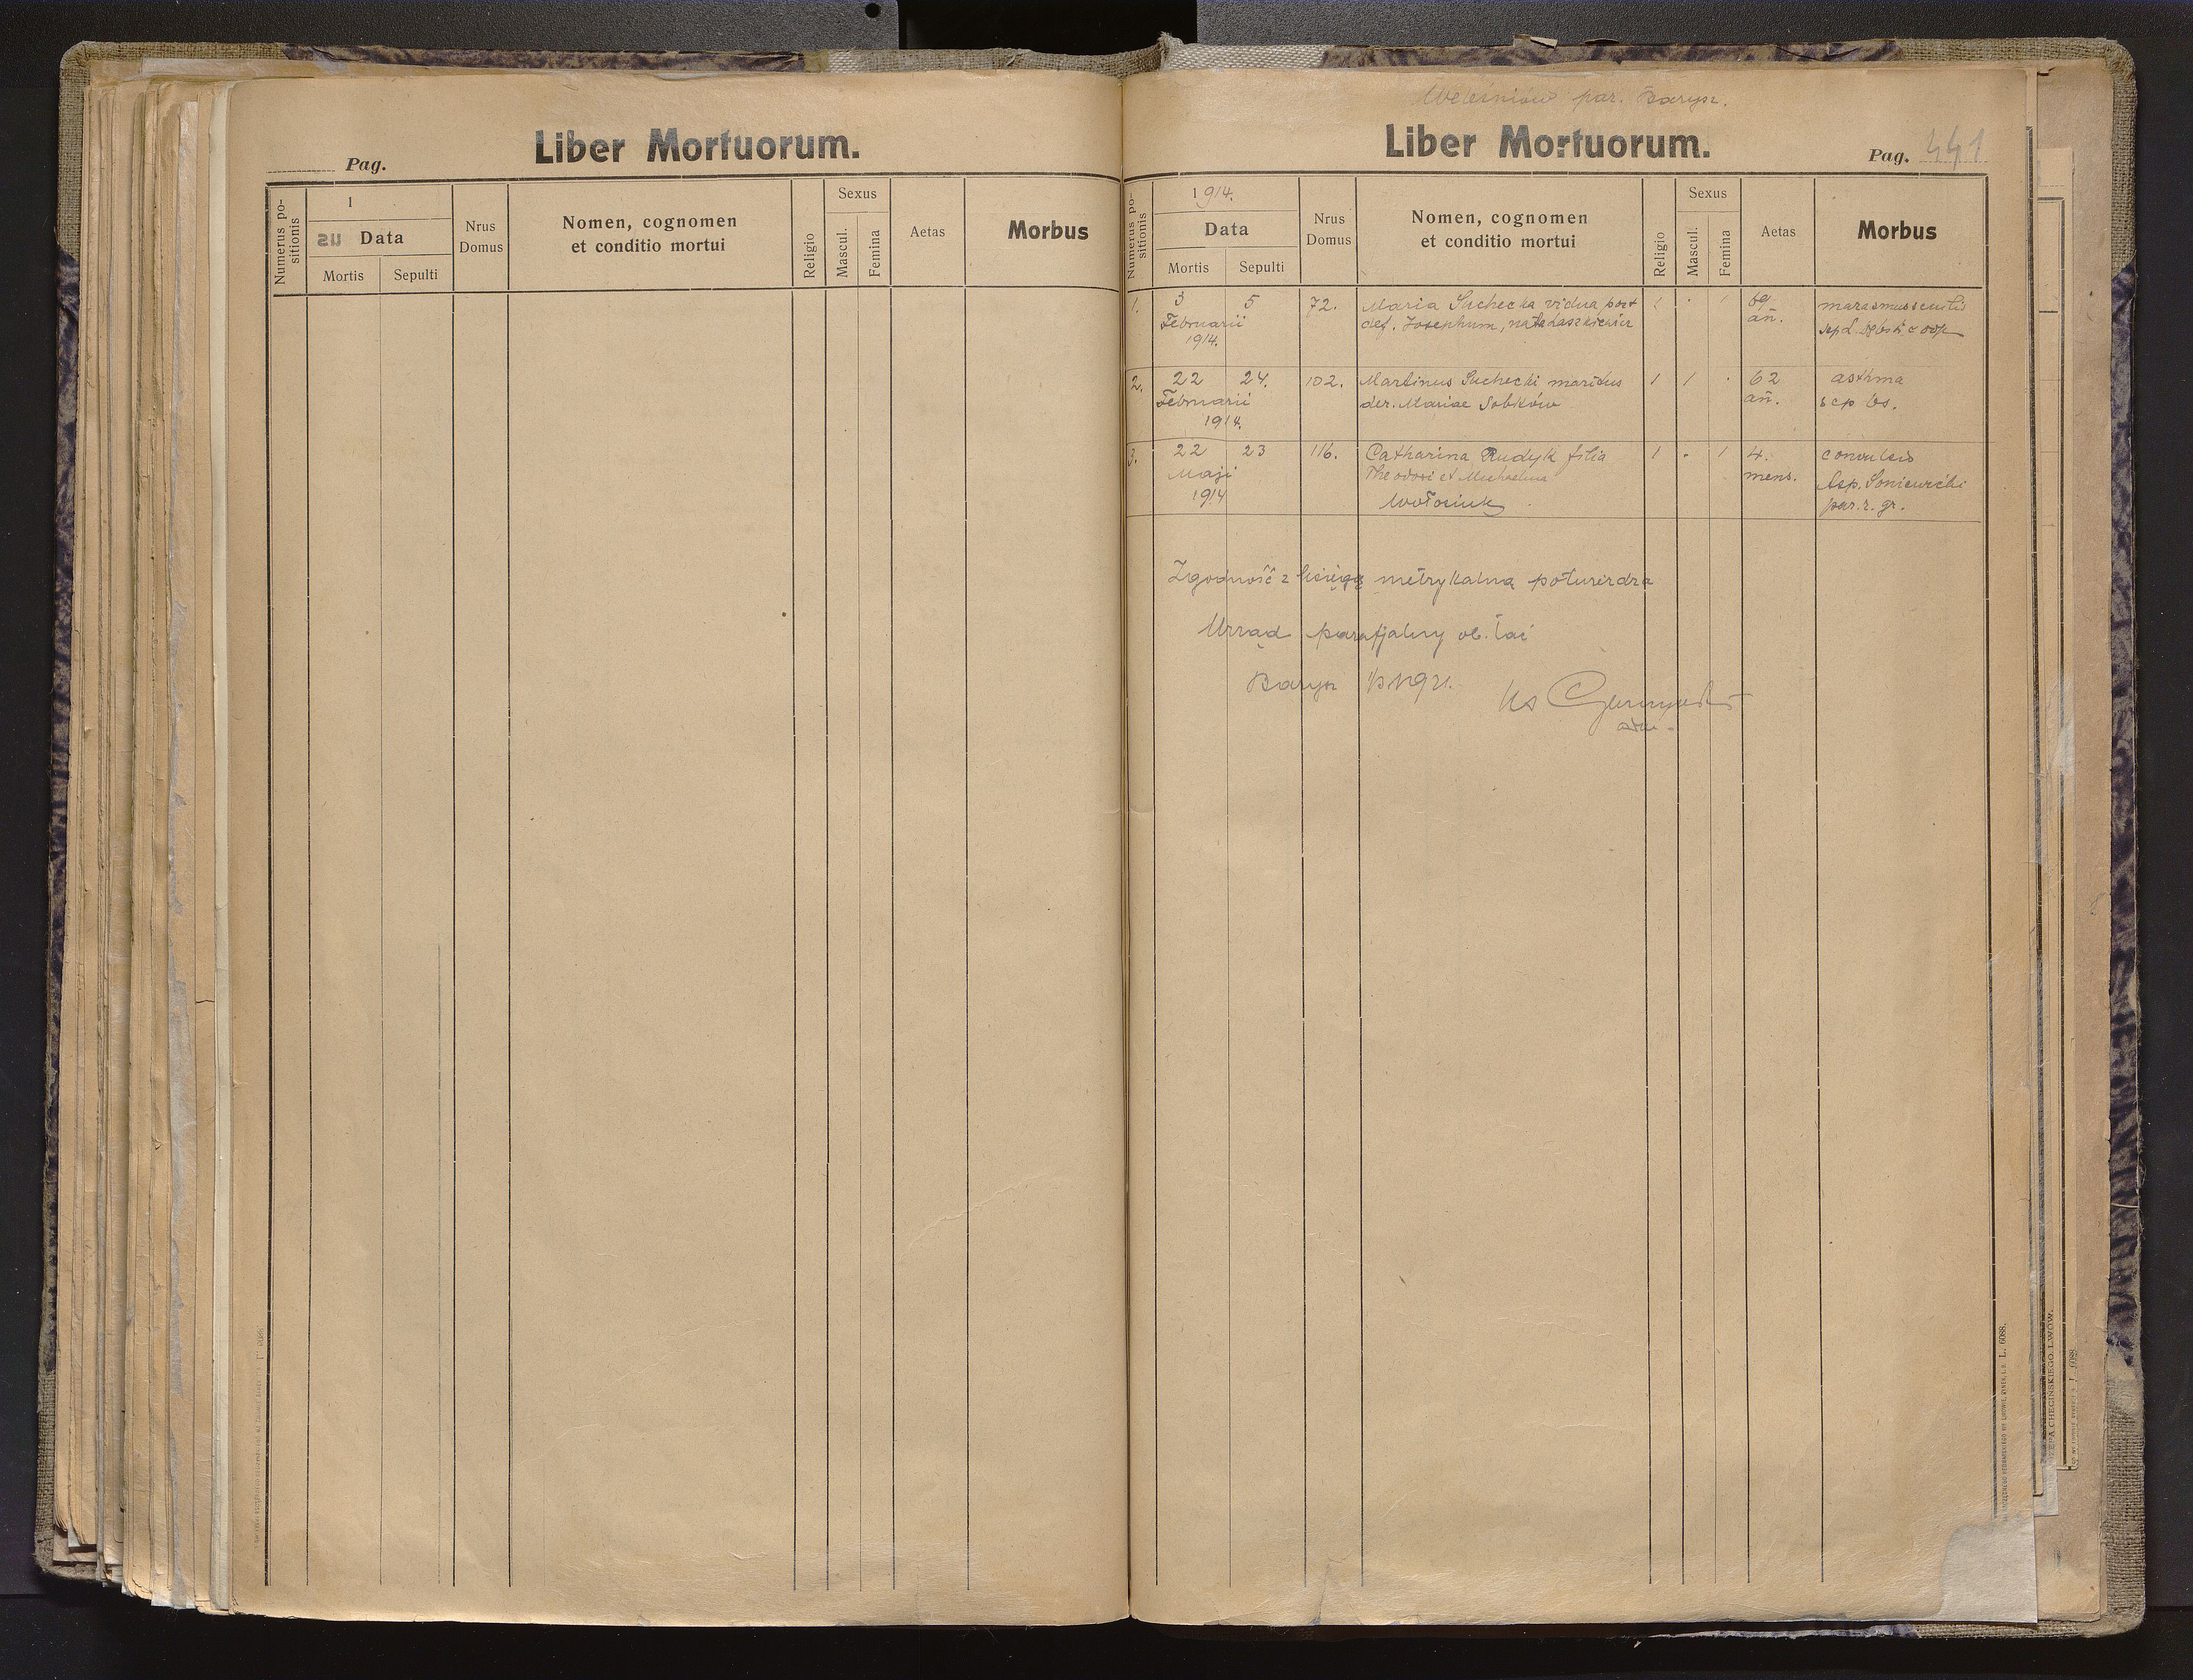 Liber Mortuorum.
Pag.
Numerus positionis
1
Data
Mortis
Sepulti
Nrus Domus
Nomen, cognomen
et conditio mortui
Religio
Sexus
Mascul.
Femina
Aetas
Morbus
Weleśniów par. Barysz.
Liber Mortuorum.
Pag. 441
Numerus positionis
1914.
Data
Mortis
Sepulti
Nrus Domus
Nomen, cognomen
et conditio mortui
Religio
Sexus
Mascul.
Femina
Aetas
Morbus
1. 3 5 72. Maria Suchecka vidua post 1 · 1 69 marasmus senilis
Februarii def. Josephum, nata Laszkiewicz añ.
1914.
2. 22 24. 102. Martinus Suchecki maritus 1 1 · 62 asthma
Februarii der. Mariae Sobków añ. sep
1914.
3. 22 23 116. Catharina Rudyk filia 1 · 1 4. convulsio
Maji Theodori et Michaelina mens. par. r. gr.
1914 Wołosiuk
Zgodność z księgą metrykalną potwierdza
Urząd parafjalny ob. łać
Barysz
Ks
adm.
L. 6088.